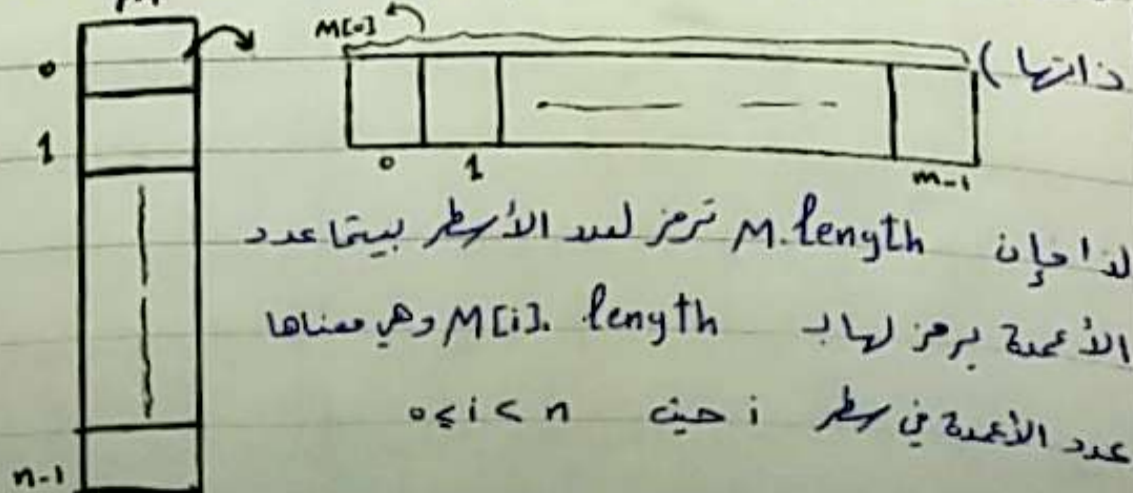 M
M[0]
0
1
0 1 m-1
ذاتها)
لذا فإن M.length ترمز لعدد الأسطر بينما عدد
الأعمدة يرمز لها بـ M[i].length وهي معناها
عدد الأعمدة في سطر i حيث 0≤i<n
n-1